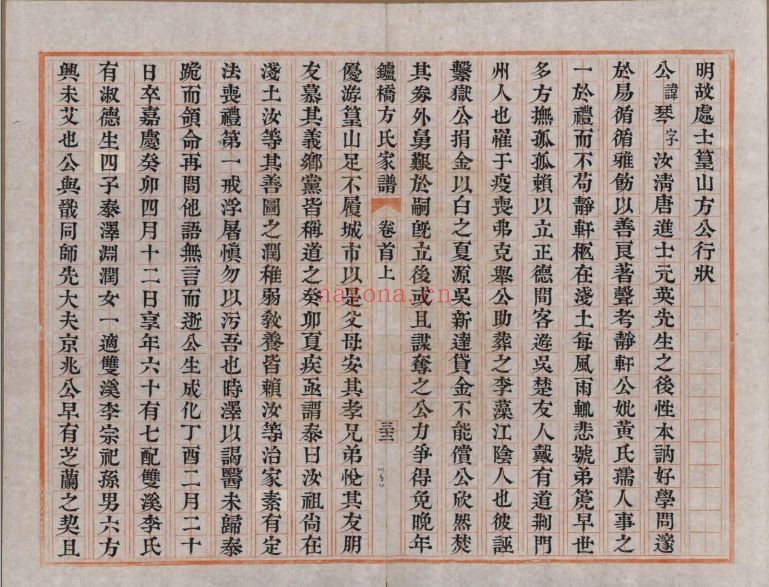 明故處士篁山方公行狀
公諱琴字汝清唐進士元英先生之後性本訥好學問邃
於易循循雅飭以善良著聲考靜軒公妣黃氏孺人事之
一於禮而不苟靜軒柩在淺土每風雨輒悲號弟箎早世
多方撫孤孤賴以立正德間客遊吳楚友人戴有道荊門
州人也罹于疫喪弗克舉公助葬之李藻江陰人也彼誣
繫獄公捐金以白之夏源吳新達貸金不能償公欣然焚
其券外舅艱於嗣旣立後或且謀奪之公力爭得免晚年
鑪橋方氏家譜 卷首上 三十三
優游篁山足不履城市以是父母安其孝兄弟悅其友朋
友慕其義鄉黨皆稱道之癸卯夏疾亟謂泰曰汝祖尙在
淺土汝等其善圖之潤稚弱敎養皆賴汝等治家素有定
法喪禮第一戒浮屠愼勿以污吾也時澤以謁醫未歸泰
跪而領命再問他語無言而逝公生成化丁酉二月二十
日卒嘉慶癸卯四月十二日享年六十有七配雙溪李氏
有淑德生四子泰澤淵潤女一適雙溪李宗祀孫男六方
興未艾也公與戩同師先大夫京兆公早有芝蘭之契且